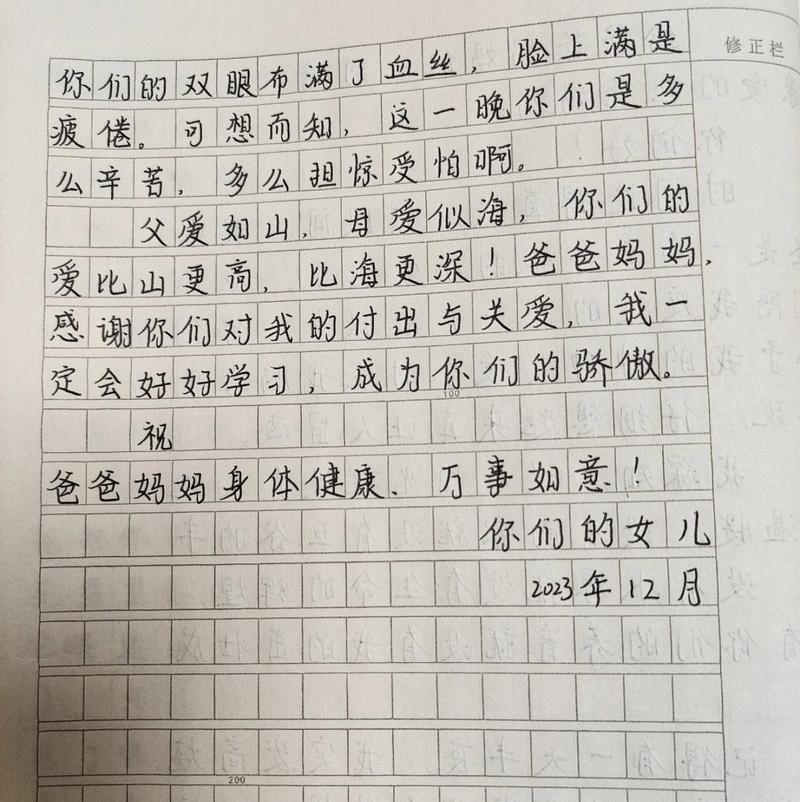 修正栏
你们的双眼布满了血丝，脸上满是
疲倦。可想而知，这一晚你们是多
么辛苦，多么担惊受怕啊。
父爱如山，母爱似海，你们的
爱比山更高，比海更深！爸爸妈妈，
感谢你们对我的付出与关爱，我一
定会好好学习，成为你们的骄傲。
100
祝
爸爸妈妈身体健康、万事如意！
你们的女儿
2023年12月
200